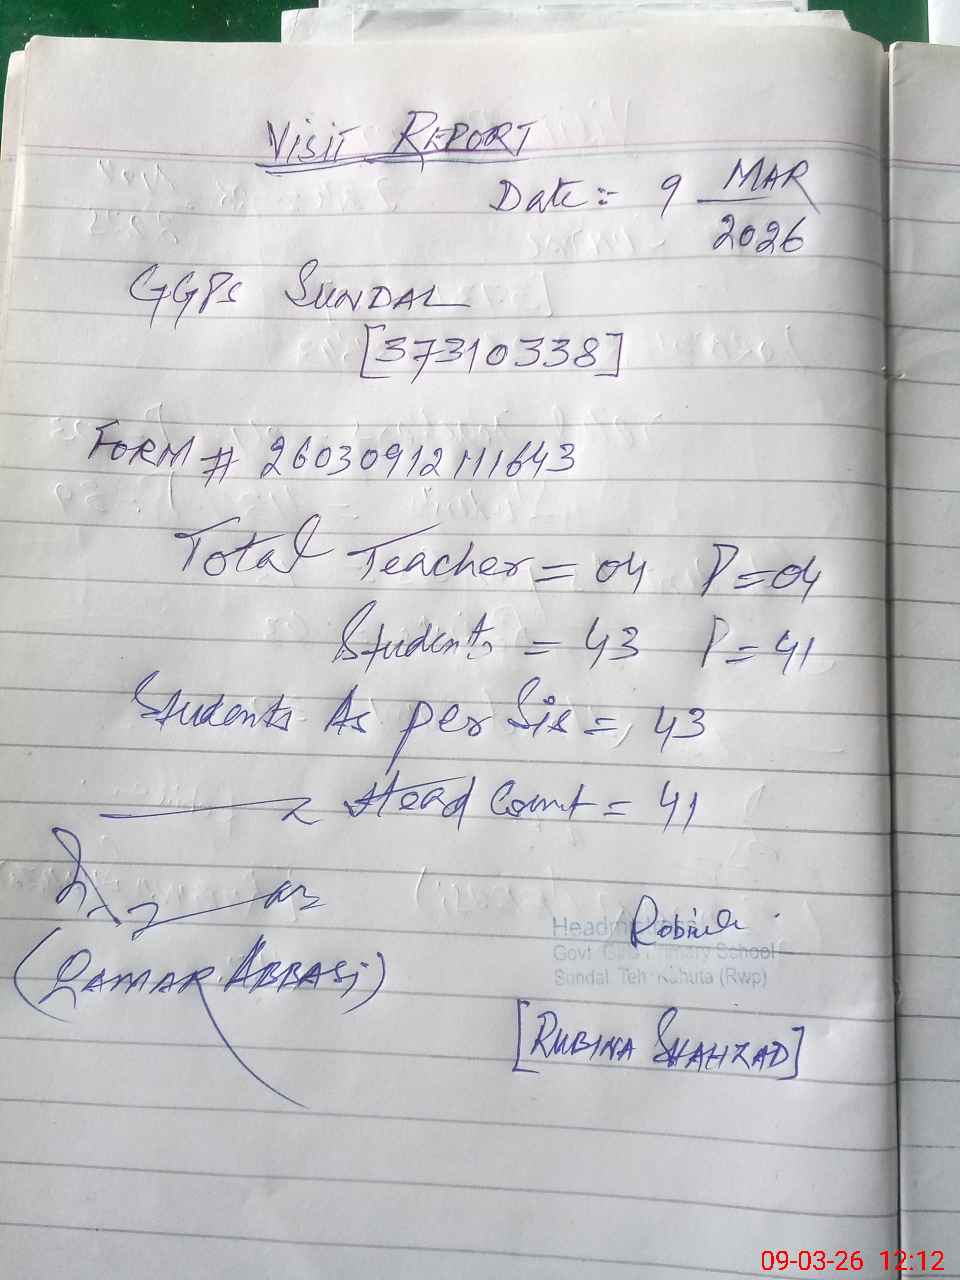 VISIT REPORT
Date:- 9 MAR
2026
GGPS SUNDAL
[37310338]
FORM # 260309121111643
Total Teacher = 04 P=04
Students = 43 P=41
Students As per Sis = 43
Head Count = 41
(QAMAR ABBASI)
Robina
Govt Girls Primary School
Sundal Teh Kahuta (Rwp)
[RUBINA SHAHZAD]
09-03-26 12:12